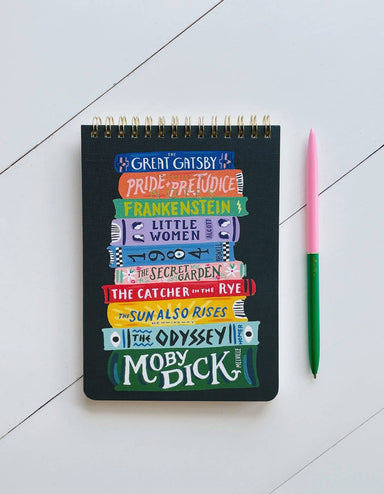 THE
GREAT GATSBY
PRIDE & PREJUDICE
FRANKENSTEIN
LITTLE
WOMEN
ALCOTT
1984
ORWELL
THE SECRET
GARDEN
THE CATCHER IN THE RYE
THE SUN ALSO RISES
HEMINGWAY
THE ODYSSEY
HOMER
MOBY
DICK
MELVILLE